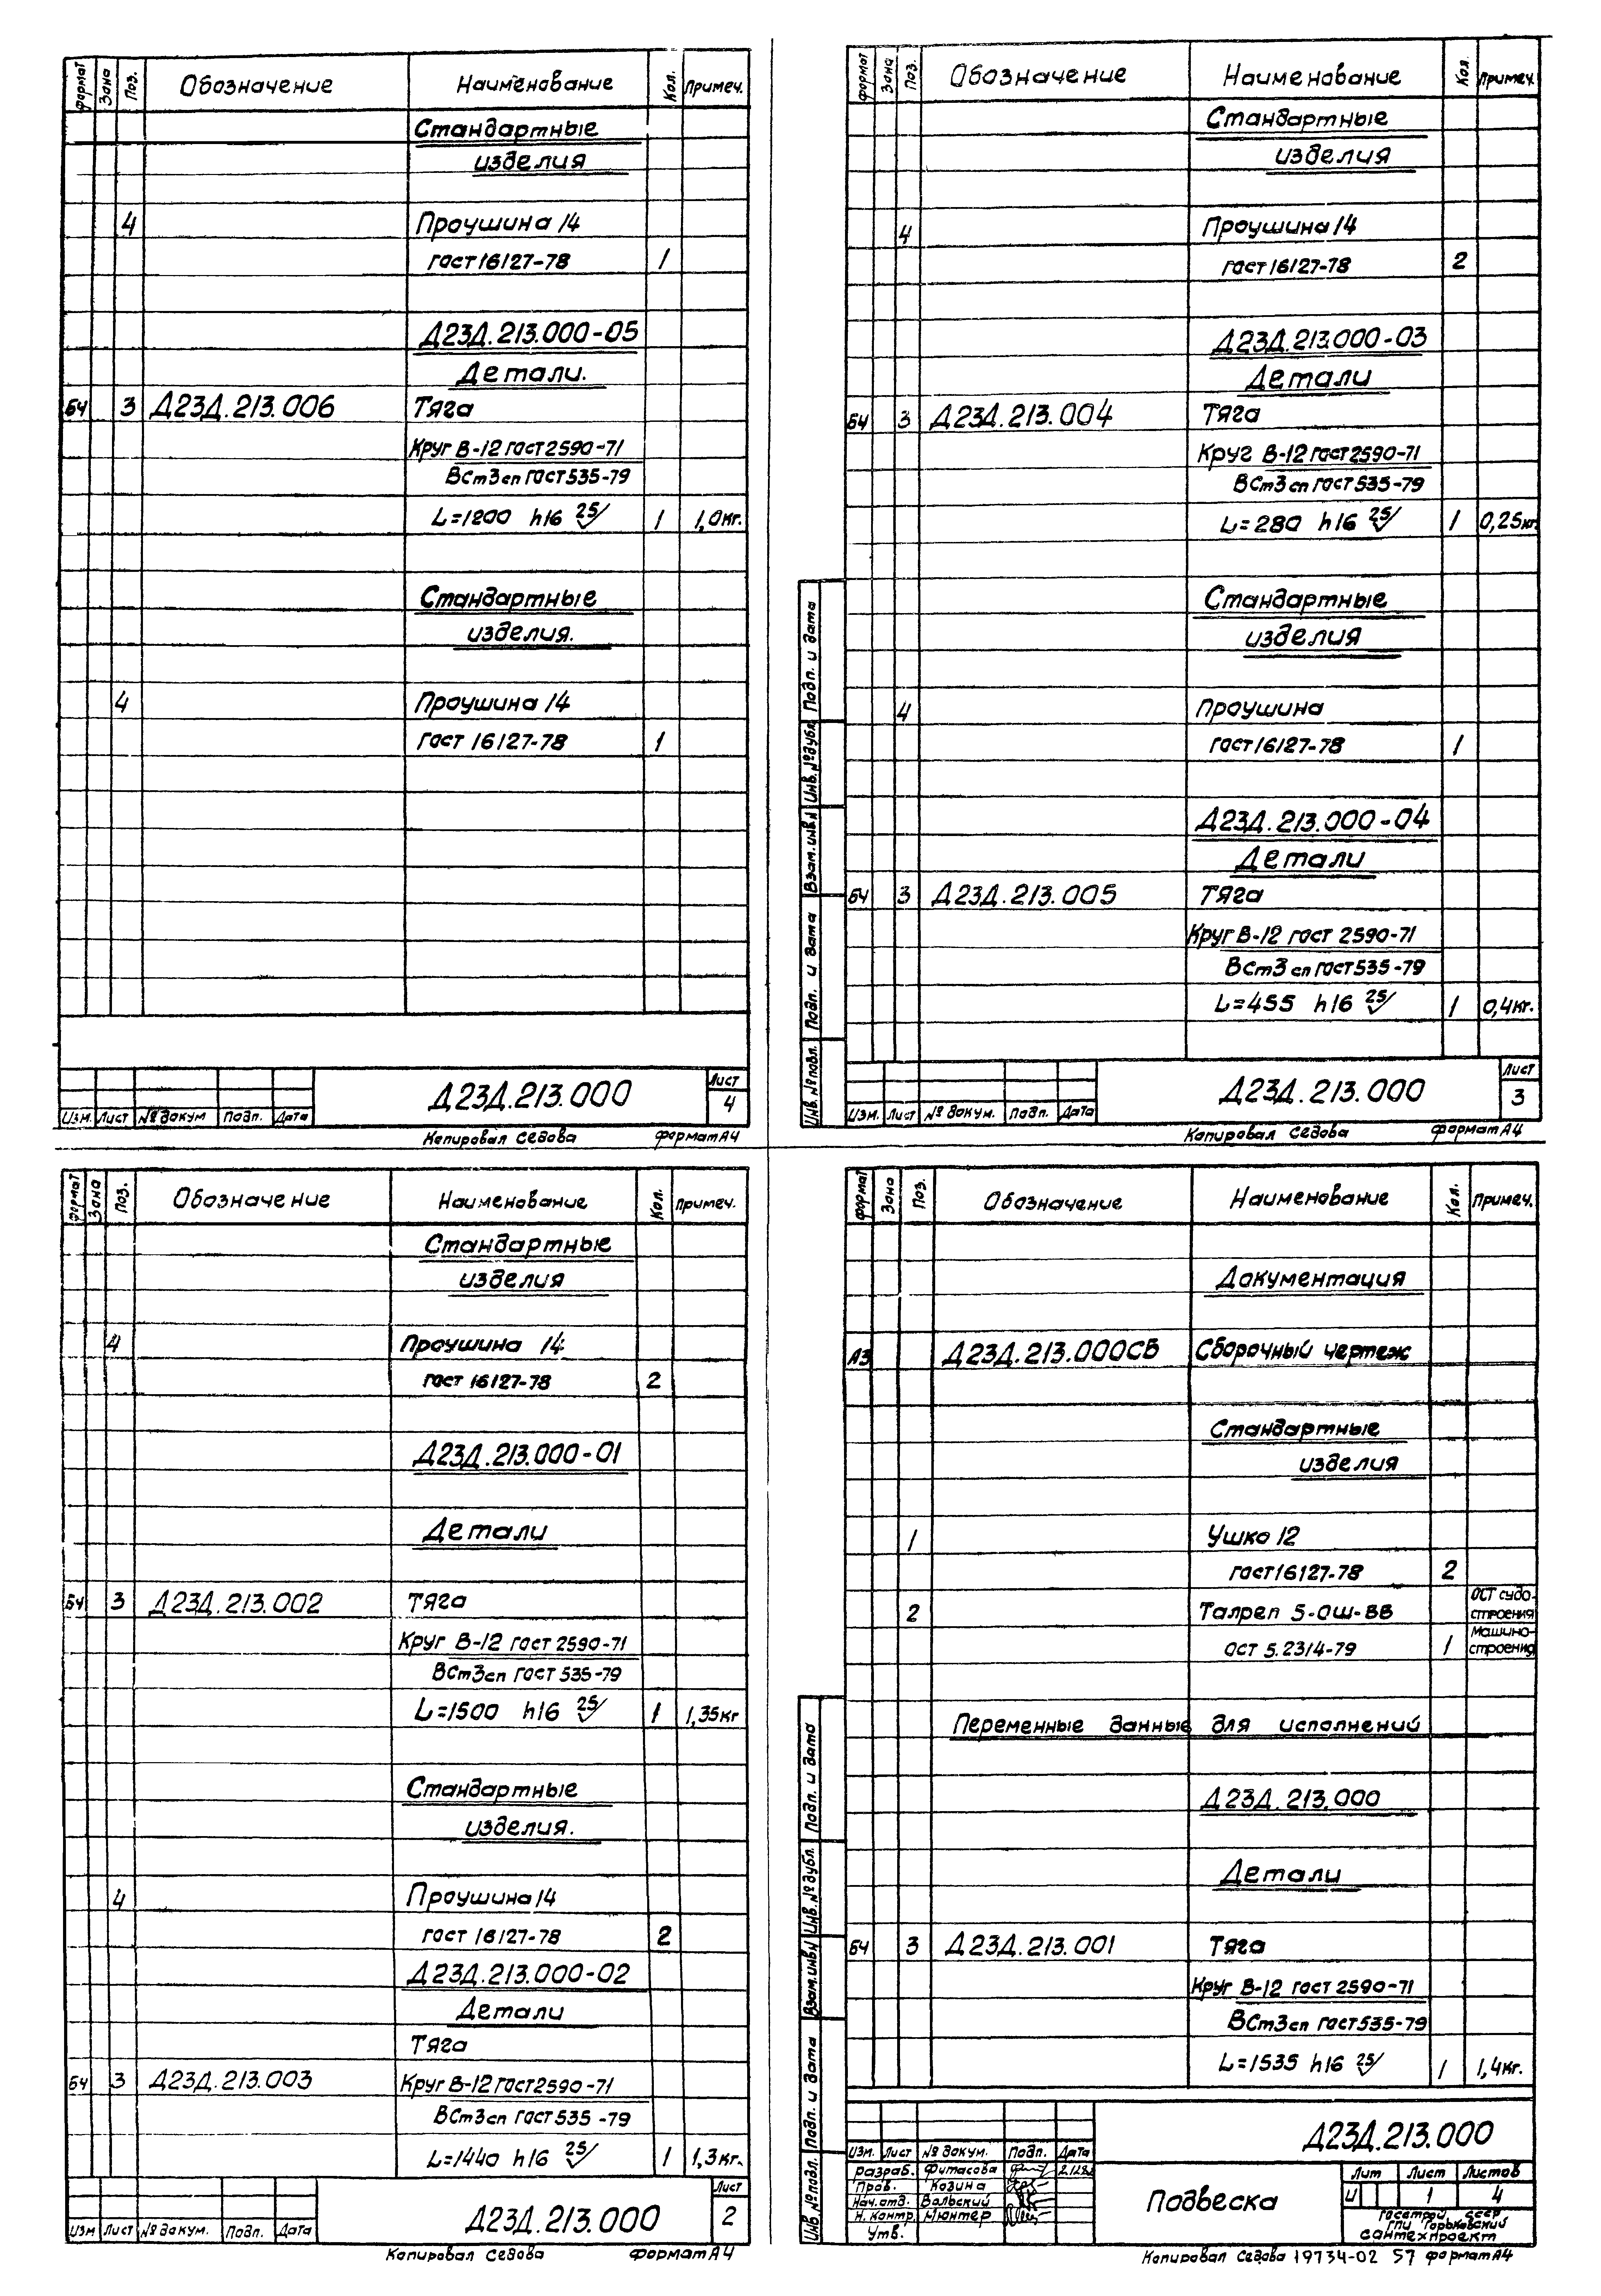 формат Зона Поз. Обозначение Наименование Кол. Примеч.
Стандартные
изделия
4 Проушина 14
гост 16127-78 1
Д23Д.213.000-05
Детали.
БЧ 3 Д23Д.213.006 Тяга
Круг В-12 гост 2590-71
ВСт3сп гост 535-79
L=1200 h16 25 1 1,0кг.
Стандартные
изделия.
4 Проушина 14
гост 16127-78 1
Изм. Лист № докум Подп. Дата
Д23Д.213.000
Лист
4
Копировал Седова формат А4
формат Зона Поз. Обозначение Наименование Кол. Примеч.
Стандартные
изделия
4 Проушина 14
гост 16127-78 2
Д23Д.213.000-03
Детали
БЧ 3 Д23Д.213.004 Тяга
Круг В-12 гост 2590-71
ВСт3сп гост 535-79
L=280 h16 25 1 0,25кг.
Стандартные
изделия
4 Проушина
гост 16127-78 1
Д23Д.213.000-04
Детали
БЧ 3 Д23Д.213.005 Тяга
Круг В-12 гост 2590-71
ВСт3сп гост 535-79
L=455 h16 25 1 0,4кг.
Инв. № подл. Подп. и дата Взам. инв. № Инв. № дубл. Подп. и дата
Изм. Лист № докум. Подп. Дата
Д23Д.213.000
Лист
3
Копировал Седова формат А4
формат Зона Поз. Обозначение Наименование Кол. Примеч.
Стандартные
изделия
4 Проушина 14
гост 16127-78 2
Д23Д.213.000-01
Детали
БЧ 3 Д23Д.213.002 Тяга
Круг В-12 гост 2590-71
ВСт3сп гост 535-79
L=1500 h16 25 1 1,35кг
Стандартные
изделия.
4 Проушина 14
гост 16127-78 2
Д23Д.213.000-02
Детали
Тяга
БЧ 3 Д23Д.213.003 Круг В-12 гост 2590-71
ВСт3сп гост 535-79
L=1440 h16 25 1 1,3кг.
Изм Лист № докум. Подп. Дата
Д23Д.213.000
Лист
2
Копировал Седова формат А4
формат Зона Поз. Обозначение Наименование Кол. Примеч.
Документация
А3 Д23Д.213.000СБ Сборочный чертеж
Стандартные
изделия
1 Ушко 12
гост 16127-78 2
2 Талреп 5-ОШ-ВВ ОСТ судо-
строения
ост 5.2314-79 1 Машино-
строения
Переменные данные для исполнений
Д23Д.213.000
Детали
БЧ 3 Д23Д.213.001 Тяга
Круг В-12 гост 2590-71
ВСт3сп гост 535-79
L=1535 h16 25 1 1,4кг.
Инв. № подл. Подп. и дата Взам. инв № Инв. № дубл. Подп. и дата
Д23Д.213.000
Изм. Лист № докум. Подп. Дата
Разраб. Фитасова
Пров. Козина
Нач. отд. Вольский
Н. контр. Мюнтер
Утв.
Подвеска
Лит Лист Листов
И 1 4
Госстрой СССР
ГПИ Горьковский
сантехпроект
Копировал Седова 19734-02 57 формат А4